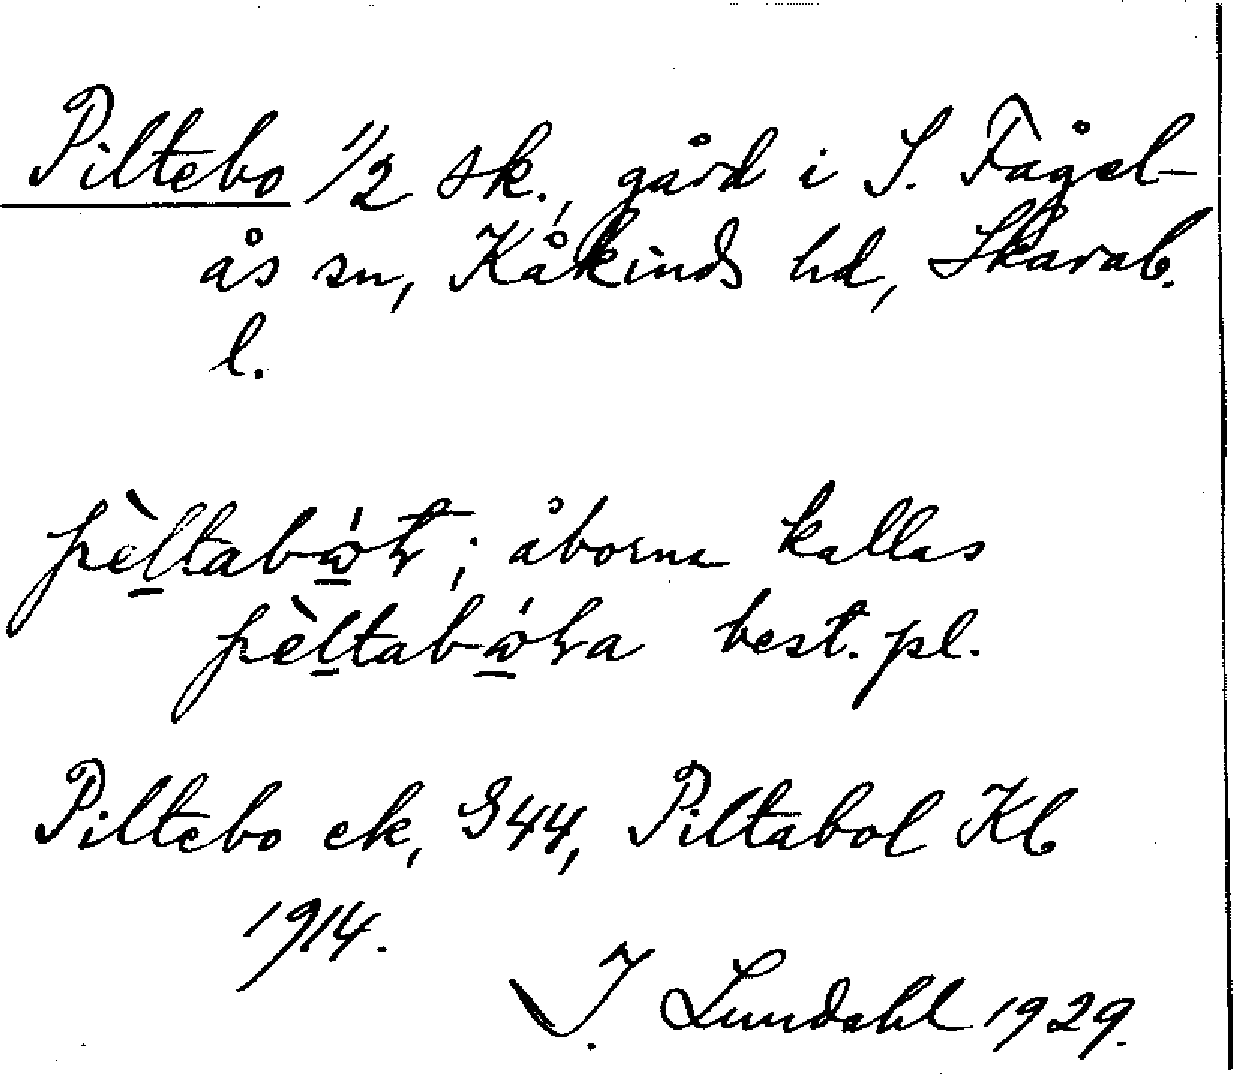 Piltebo 1/2 sk., gård i S. Fågel-
ås sn, Kåkinds hd, Skarab.
l.
åborna kallas
best. pl.
Piltebo ek, G44, Piltabol Kb
1914.
I. Lundahl 1929.